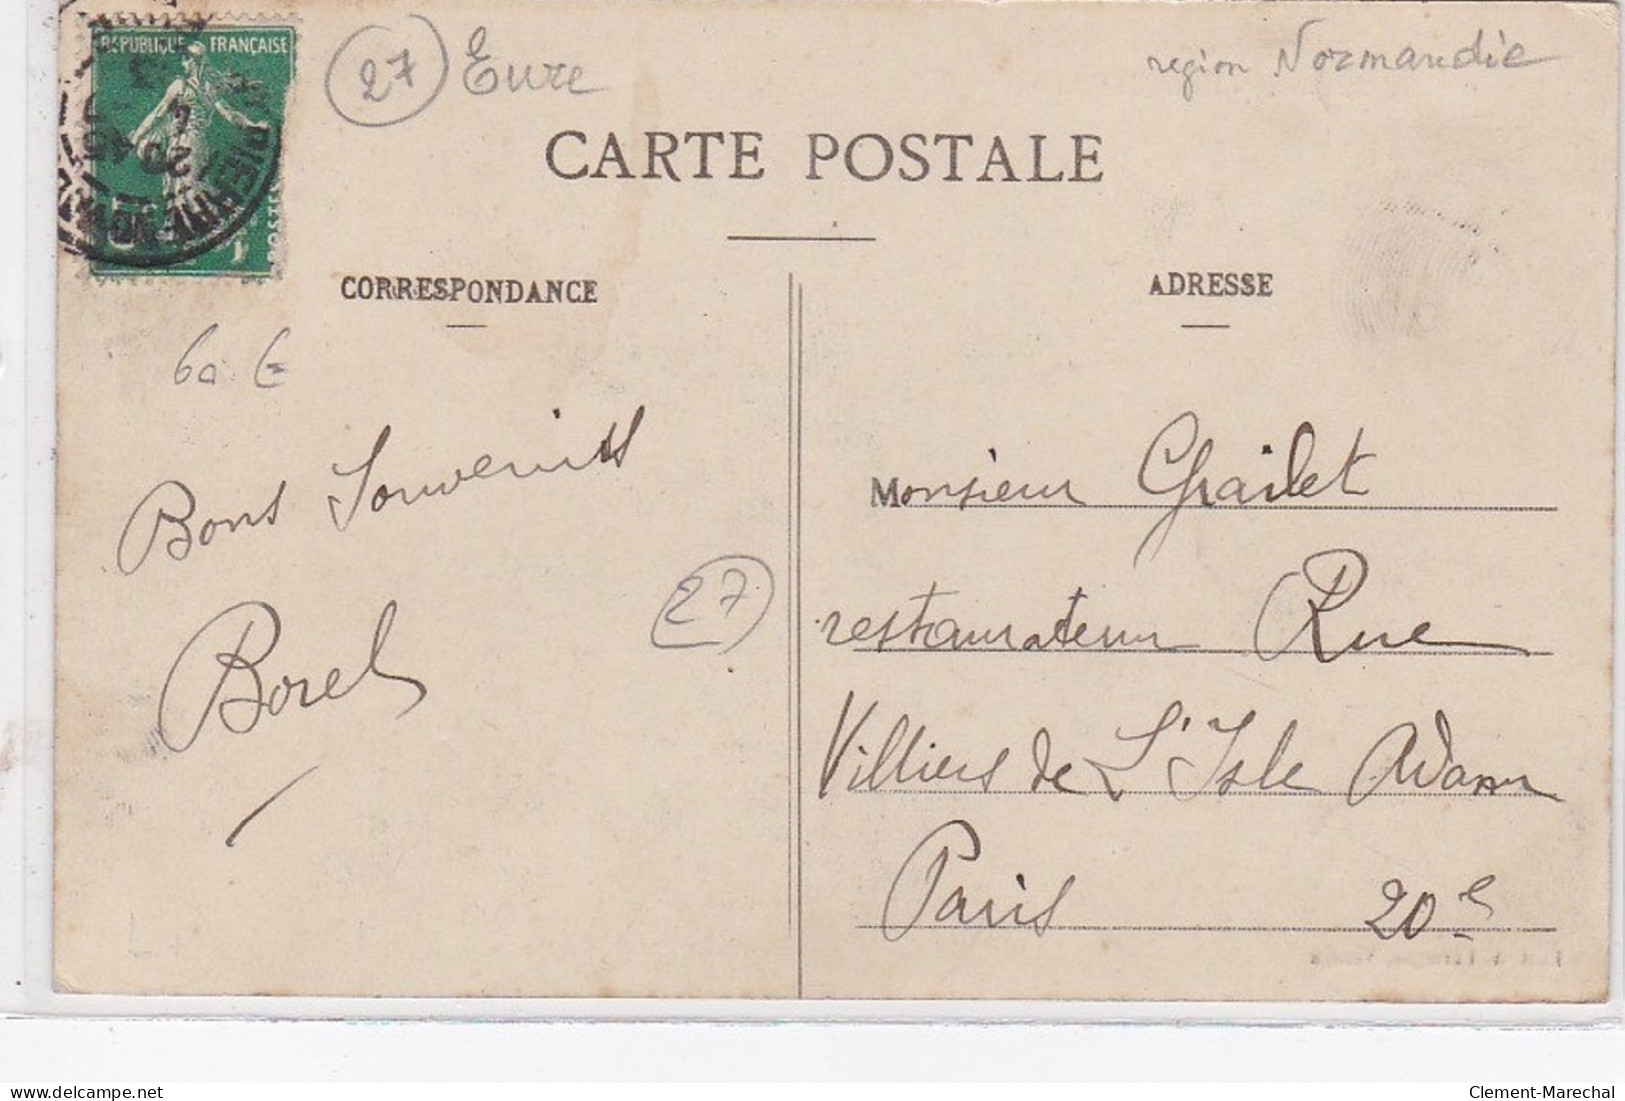 REPUBLIQUE FRANÇAISE
POSTES
27 Eure
region Normandie
CARTE POSTALE
CORRESPONDANCE
ADRESSE
60 €
Bons Souvenirs
Borel
27
Monsieur Grailet
restaurateur Rue
Villiers de L'Isle Adam
Paris 20e
delcampe.net
Clement-Marechal